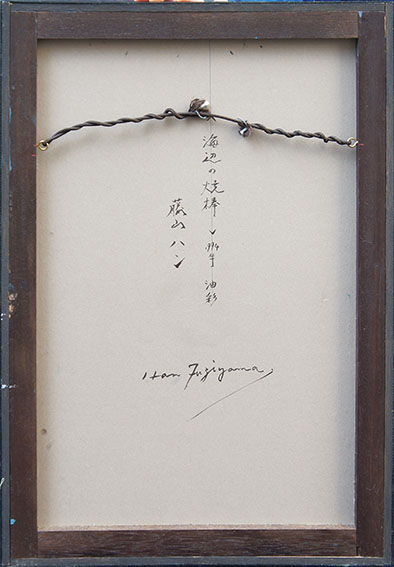 海辺の焼棒 1994年 油彩
藤山ハン
Han Fujiyama